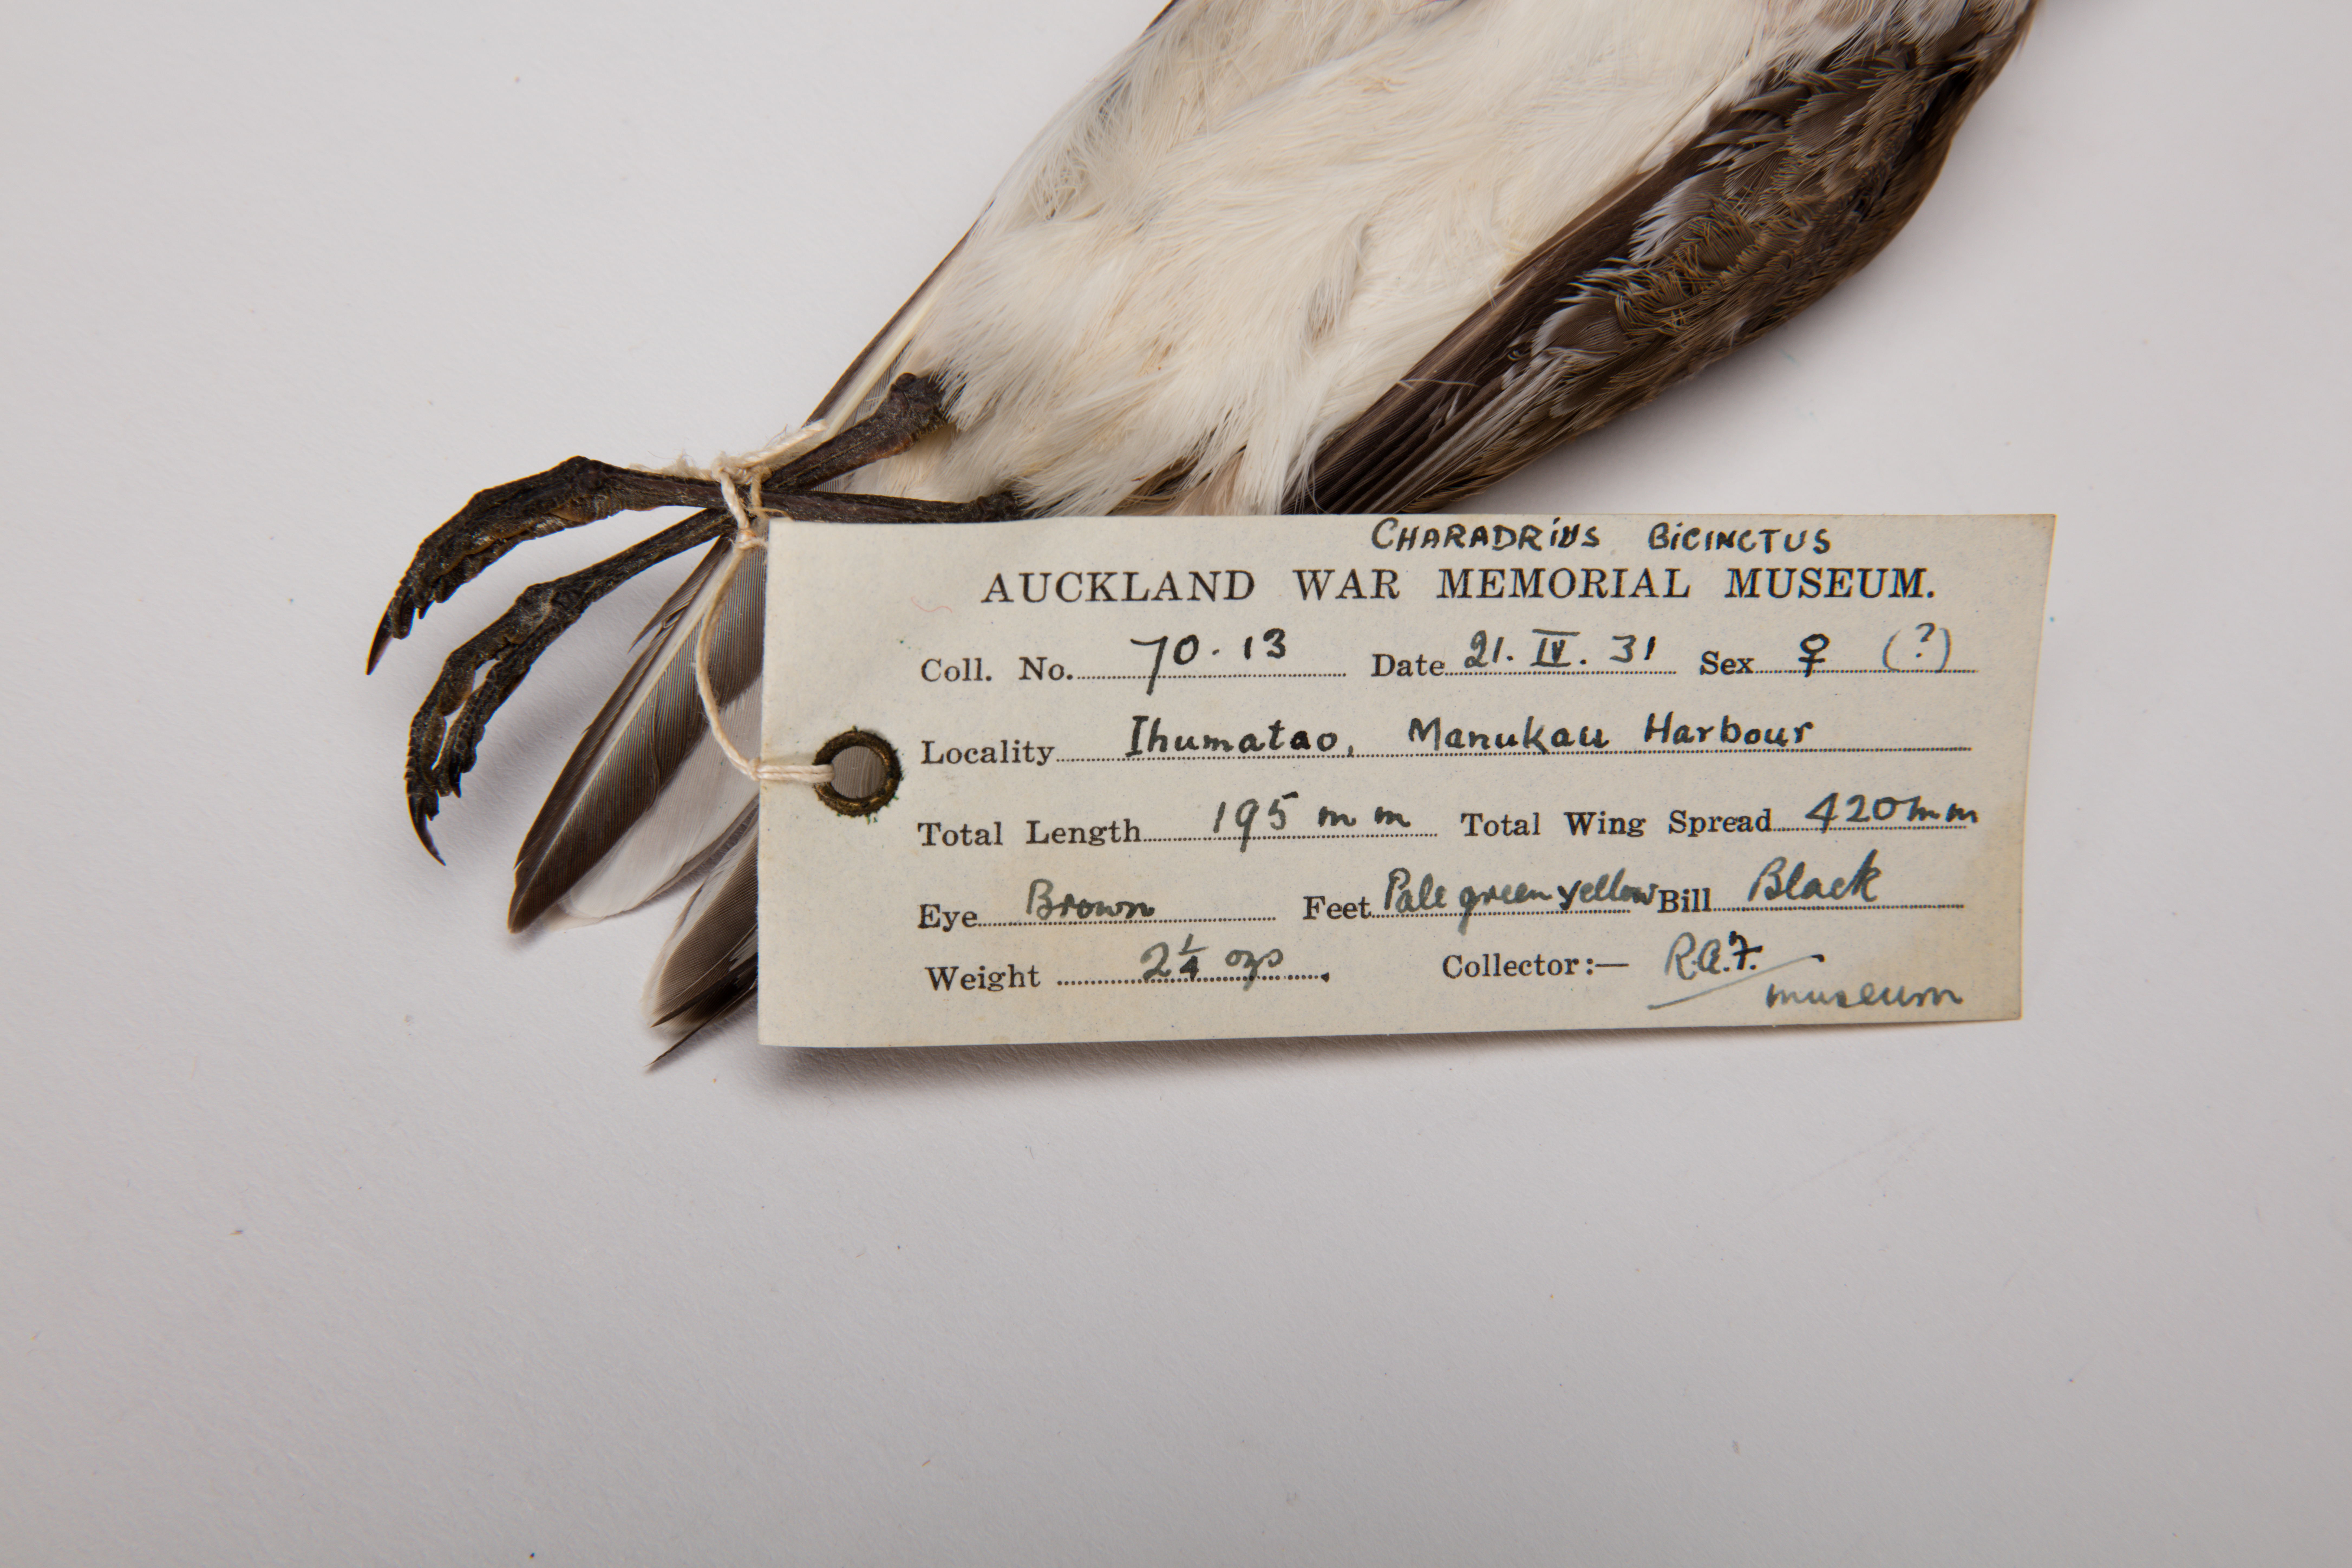 CHARADRIUS BICINCTUS
AUCKLAND WAR MEMORIAL MUSEUM.
Coll. No. 70.13 Date 21. IV. 31 Sex ♀ (?)
Locality Ihumatao, Manukau Harbour
Total Length 195 mm Total Wing Spread 420mm
Eye Brown Feet Pale green yellow Bill Black
Weight 2 1/4 ozs. Collector:— R.A.F.
museum